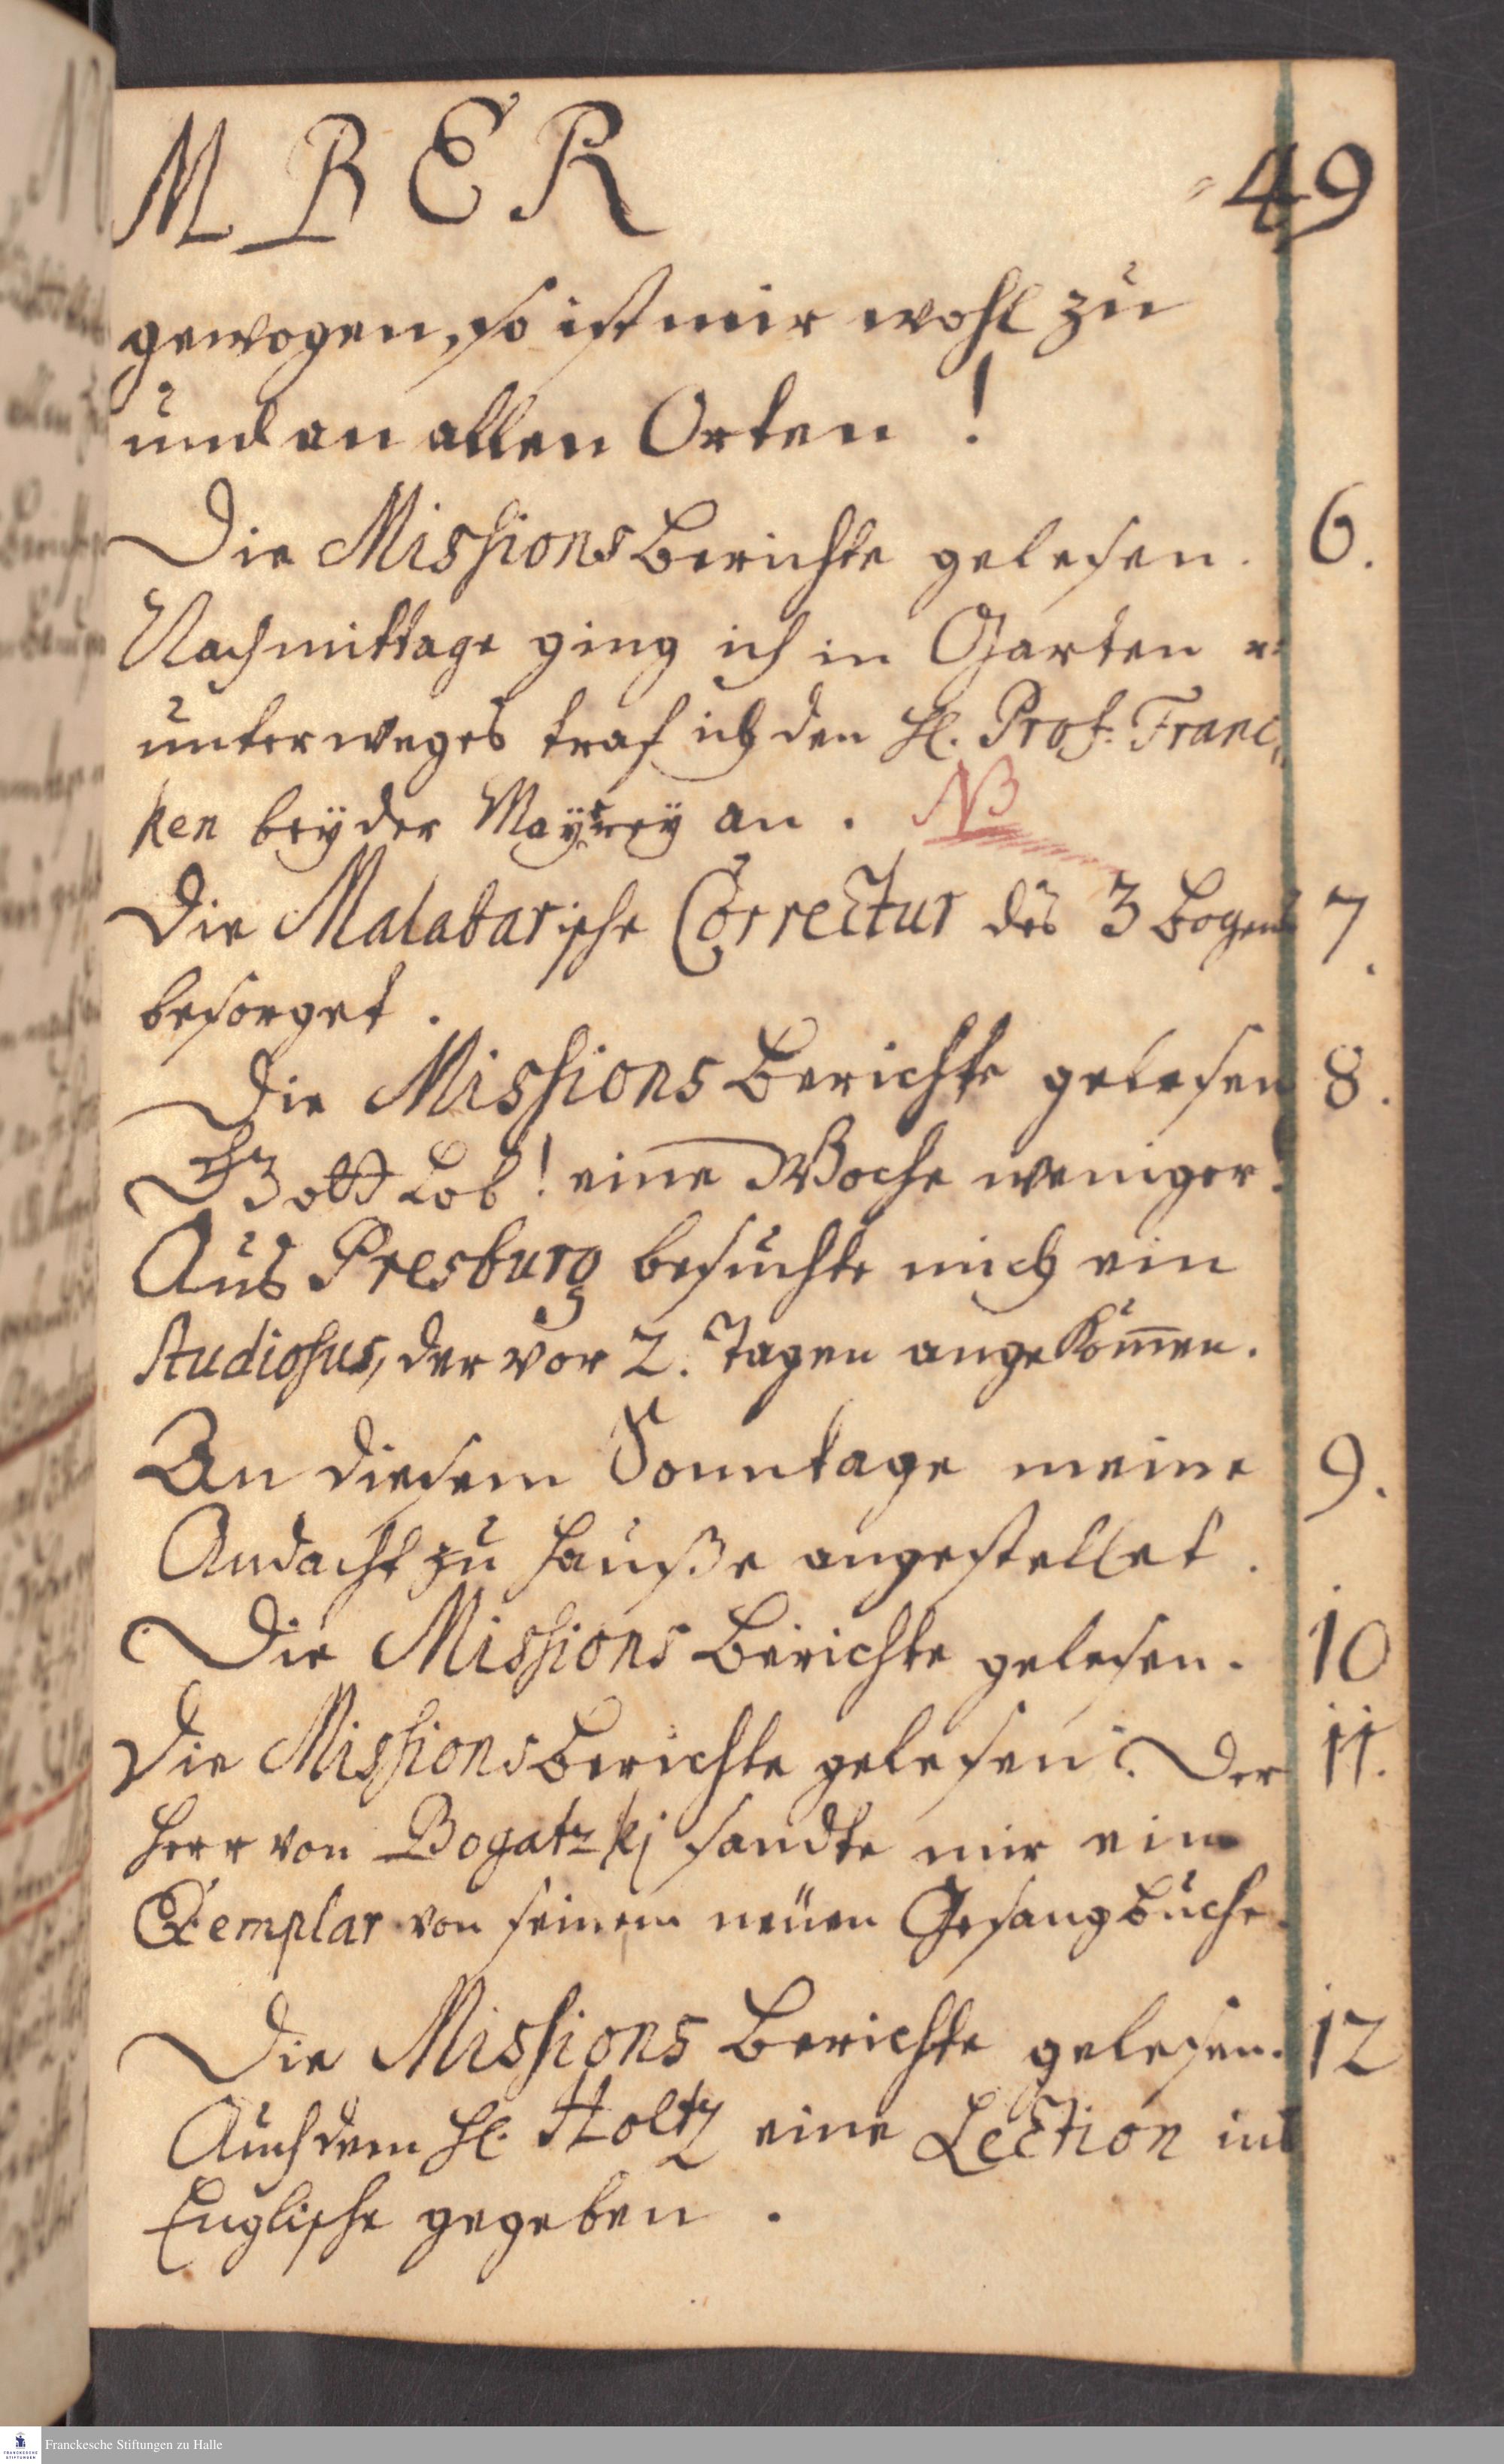 MBER
49
gewogen, so ist mir wohl zu
und an allen Orten !
Die Missions Berichte gelesen. 6.
Nachmittage ging ich in Garten u:
unterweges traf ich den H. Prof. Franc„
ken beÿ der Maÿereÿ an. NB
Die Malabarische Correctur des 3 Bogens 7.
besorget.
Die Missions Berichte gelesen 8.
Gott Lob! eine Woche weniger!
Aus Presburg besuchte mich ein
Studiosus, der vor 2. Tagen angekom̄en.
An diesem Sonntage meine 9.
Andacht zu Hauße angestellet.
Die Missions Berichte gelesen. 10
Die Missions Berichte gelesen. Der 11.
Herr von Bogatzkj sandte mir ein
Exemplar von seinem neuen Gesangbuche.
Die Missions Berichte gelesen. 12
Auch dem H. Holtz eine Lection ins
Englische gegeben.
Franckesche Stiftungen zu Halle